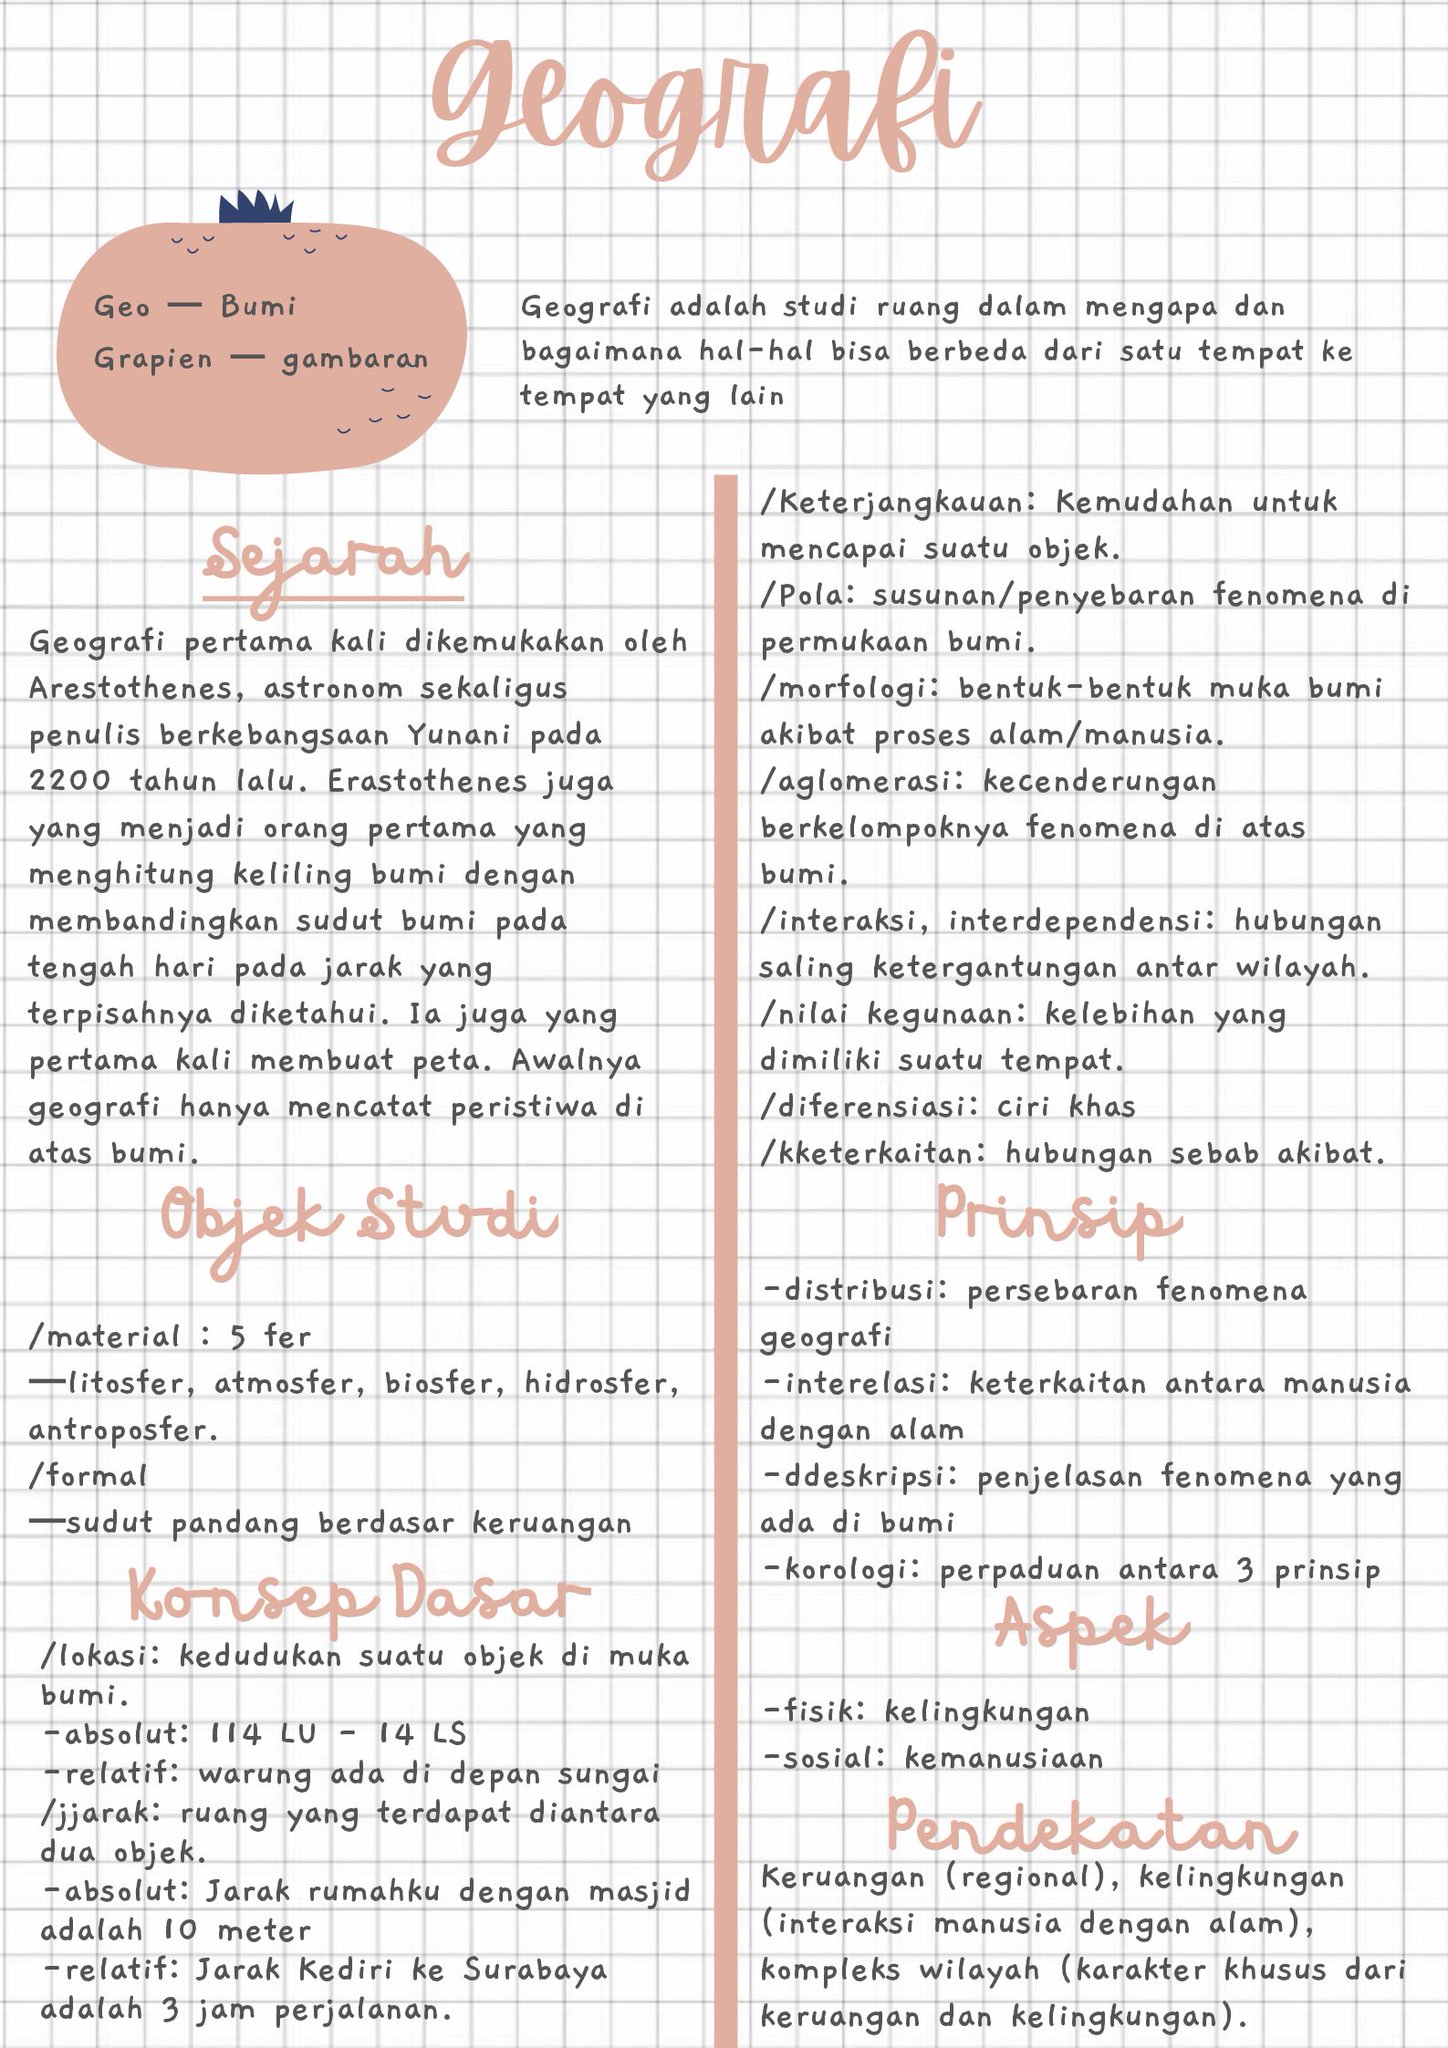 Geografi
Geo — Bumi
Grapien — gambaran
Geografi adalah studi ruang dalam mengapa dan
bagaimana hal-hal bisa berbeda dari satu tempat ke
tempat yang lain
Sejarah
Geografi pertama kali dikemukakan oleh
Arestothenes, astronom sekaligus
penulis berkebangsaan Yunani pada
2200 tahun lalu. Erastothenes juga
yang menjadi orang pertama yang
menghitung keliling bumi dengan
membandingkan sudut bumi pada
tengah hari pada jarak yang
terpisahnya diketahui. Ia juga yang
pertama kali membuat peta. Awalnya
geografi hanya mencatat peristiwa di
atas bumi.
Objek Studi
/material : 5 fer
—litosfer, atmosfer, biosfer, hidrosfer,
antroposfer.
/formal
—sudut pandang berdasar keruangan
Konsep Dasar
/lokasi: kedudukan suatu objek di muka
bumi.
-absolut: 114 LU - 14 LS
-relatif: warung ada di depan sungai
/jjarak: ruang yang terdapat diantara
dua objek.
-absolut: Jarak rumahku dengan masjid
adalah 10 meter
-relatif: Jarak Kediri ke Surabaya
adalah 3 jam perjalanan.
/Keterjangkauan: Kemudahan untuk
mencapai suatu objek.
/Pola: susunan/penyebaran fenomena di
permukaan bumi.
/morfologi: bentuk-bentuk muka bumi
akibat proses alam/manusia.
/aglomerasi: kecenderungan
berkelompoknya fenomena di atas
bumi.
/interaksi, interdependensi: hubungan
saling ketergantungan antar wilayah.
/nilai kegunaan: kelebihan yang
dimiliki suatu tempat.
/diferensiasi: ciri khas
/kketerkaitan: hubungan sebab akibat.
Prinsip
-distribusi: persebaran fenomena
geografi
-interelasi: keterkaitan antara manusia
dengan alam
-ddeskripsi: penjelasan fenomena yang
ada di bumi
-korologi: perpaduan antara 3 prinsip
Aspek
-fisik: kelingkungan
-sosial: kemanusiaan
Pendekatan
Keruangan (regional), kelingkungan
(interaksi manusia dengan alam),
kompleks wilayah (karakter khusus dari
keruangan dan kelingkungan).